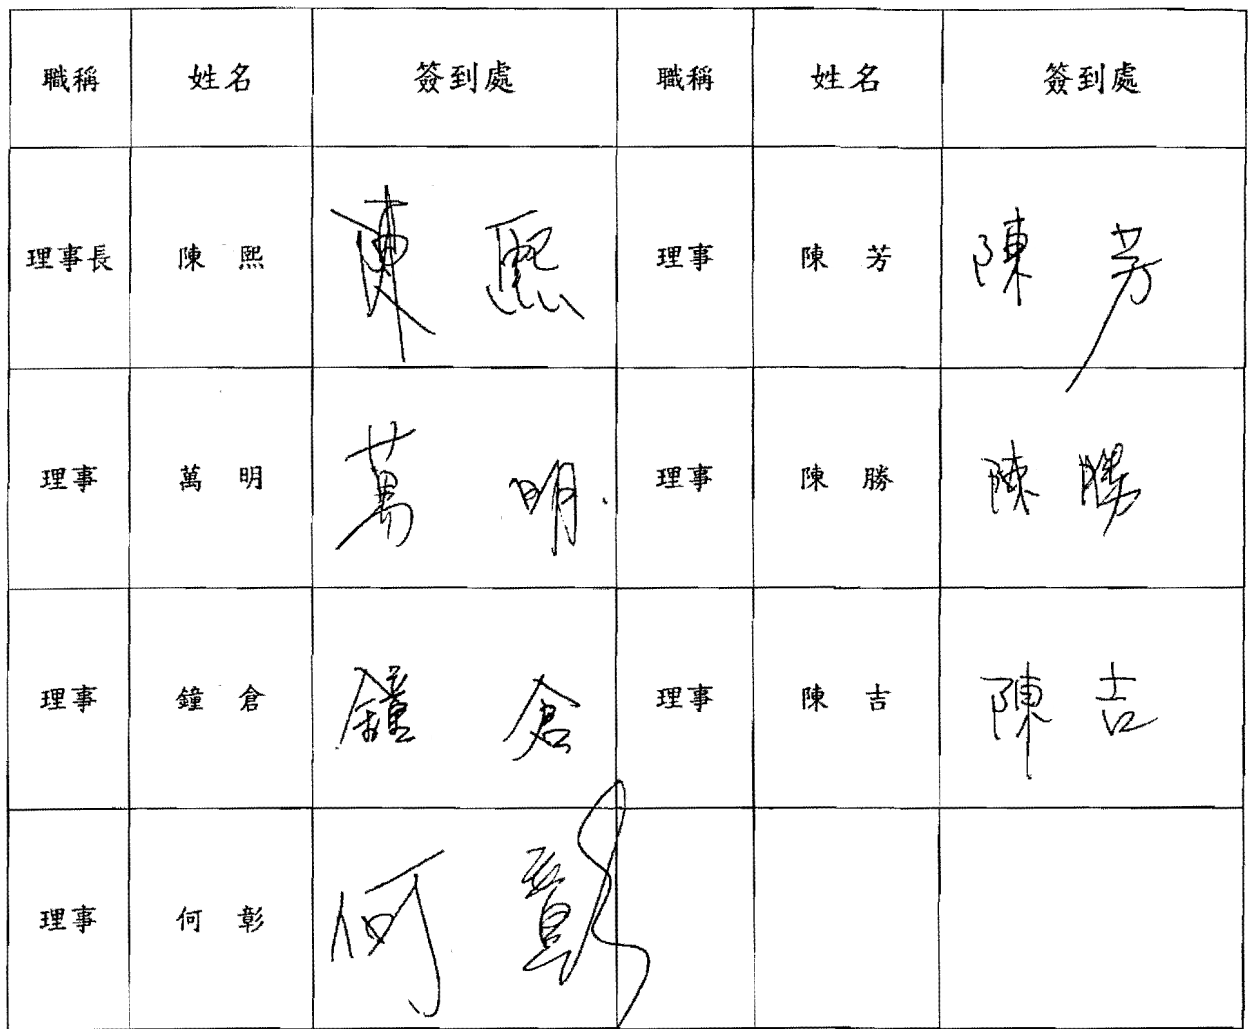 職稱 姓名 簽到處 職稱 姓名 簽到處
理事長 陳 熙 陳 熙 理事 陳 芳 陳 芳
理事 萬 明 萬 明. 理事 陳 勝 陳 勝
理事 鐘 倉 鐘 倉 理事 陳 吉 陳 吉
理事 何 彰 何 彰